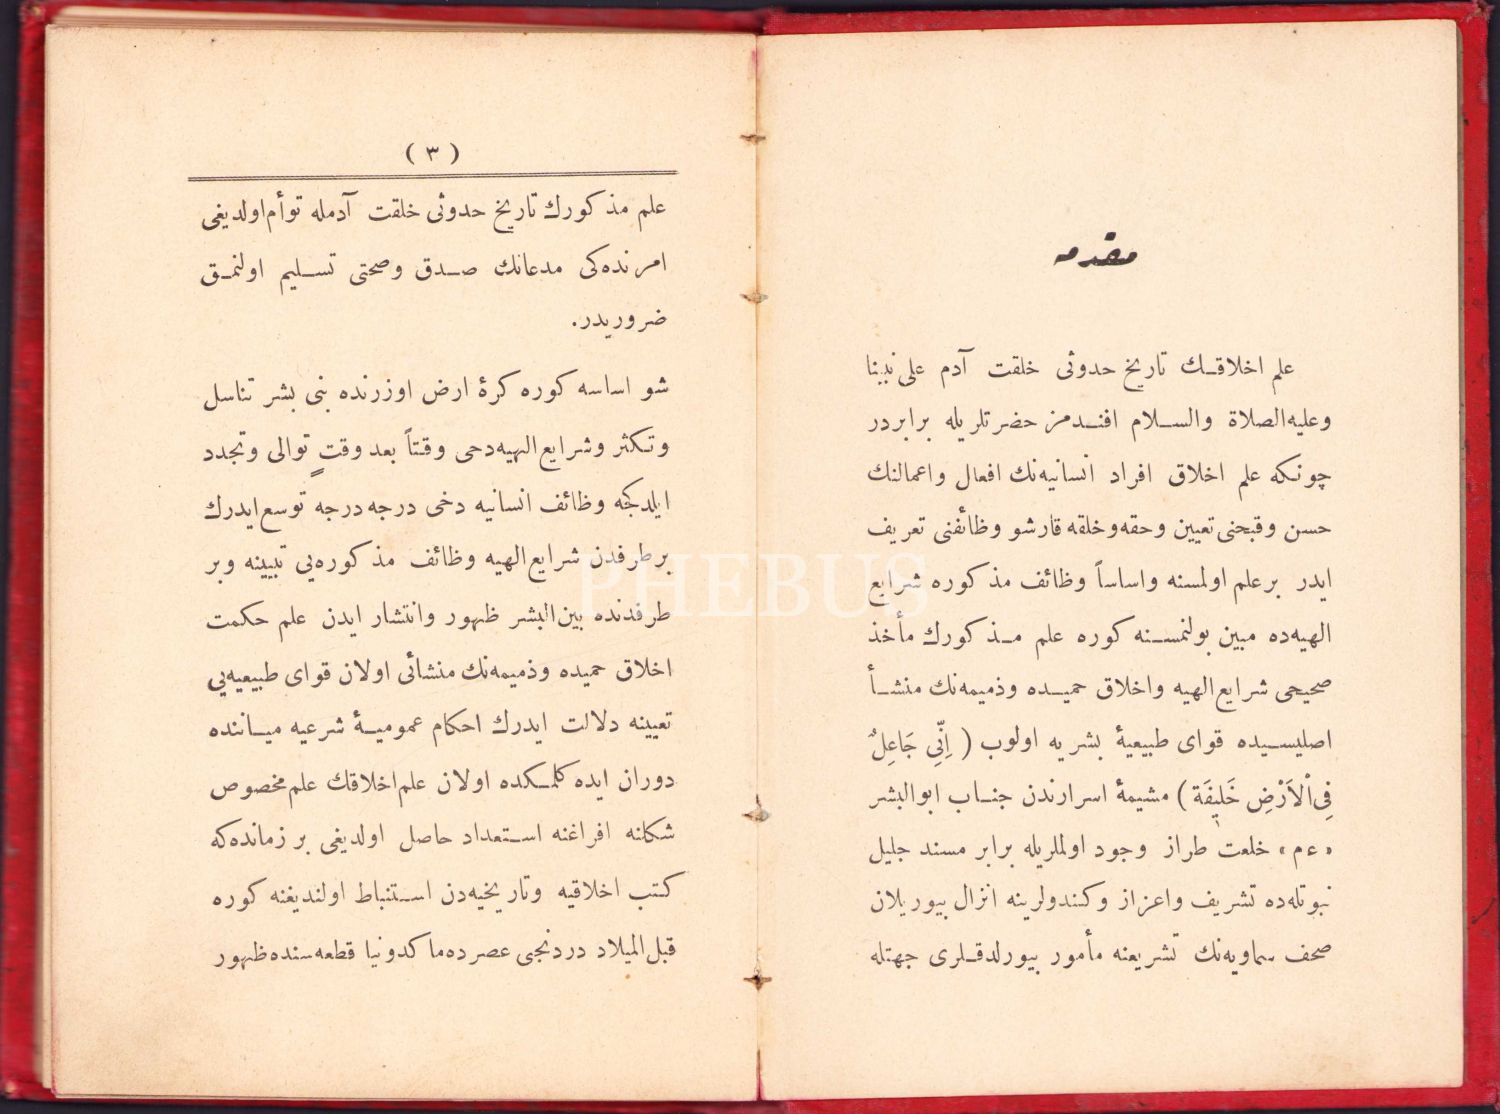 مقدمه
علم اخلاقك تاريخ حدوثى خلقت آدم على نبينا
وعليه‌الصلاة والسلام افندمز حضرتلريله برابردر
چونكه علم اخلاق افراد انسانيه‌نك افعال واعمالنك
حسن وقبحنى تعيين وحقه‌وخلقه قارشو وظائفنى تعريف
ايدر برعلم اولمسنه واساساً وظائف مذكوره شرايع
الهيه‌ده مبين بولنمسنه كوره علم مذكورك مأخذ
صحيحى شرايع‌الهيه واخلاق حميده وذميمه‌نك منشأ
اصليسيده قواى طبيعيۀ بشريه اولوب ( اِنِّى جَاعِلٌ
فِى‌اْلاَرْضِ خَليفَة ) مشيمۀ اسرارندن جناب ابوالبشر
«ع‌م» خلعت طراز وجود اولملريله برابر مسند جليل
نبوتله‌ده تشريف واعزاز وكندولرينه انزال بيوريلان
صحف سماويه‌نك تشريعنه مأمور بيورلدقلرى جهتله
( ٣ )
علم مذكورك تاريخ حدوثى خلقت آدمله توأم‌اولديغى
امرنده‌كى مدعانك صدق وصحتى تسليم اولنمق
ضروريدر.
شو اساسه كوره كرۀ ارض اوزرنده بنى بشر تناسل
وتكثر وشرايع‌الهيه‌دحى وقتاً بعد وقتٍ توالى وتجدد
ايلدكجه وظائف انسانيه دخى درجه‌درجه توسع‌ايدرك
برطرفدن شرايع‌الهيه وظائف مذكوره‌يى تبيينه وبر
طرفدنده بين‌البشر ظهور وانتشار ايدن علم حكمت
اخلاق حميده وذميمه‌نك منشائى اولان قواى طبيعيه‌يى
تعيينه دلالت ايدرك احكام عموميۀ شرعيه ميانnده
دوران ايده كلمكده اولان علم‌اخلاقك علم‌مخصوص
شكلنه افراغنه استعداد حاصل اولديغى بر زمانده‌كه
كتب اخلاقيه وتاريخيه‌دن استنباط اولنديغنه كوره
قبل‌الميلاد دردنجى عصرده‌ماكدونيا قطعه‌سنده‌ظهور